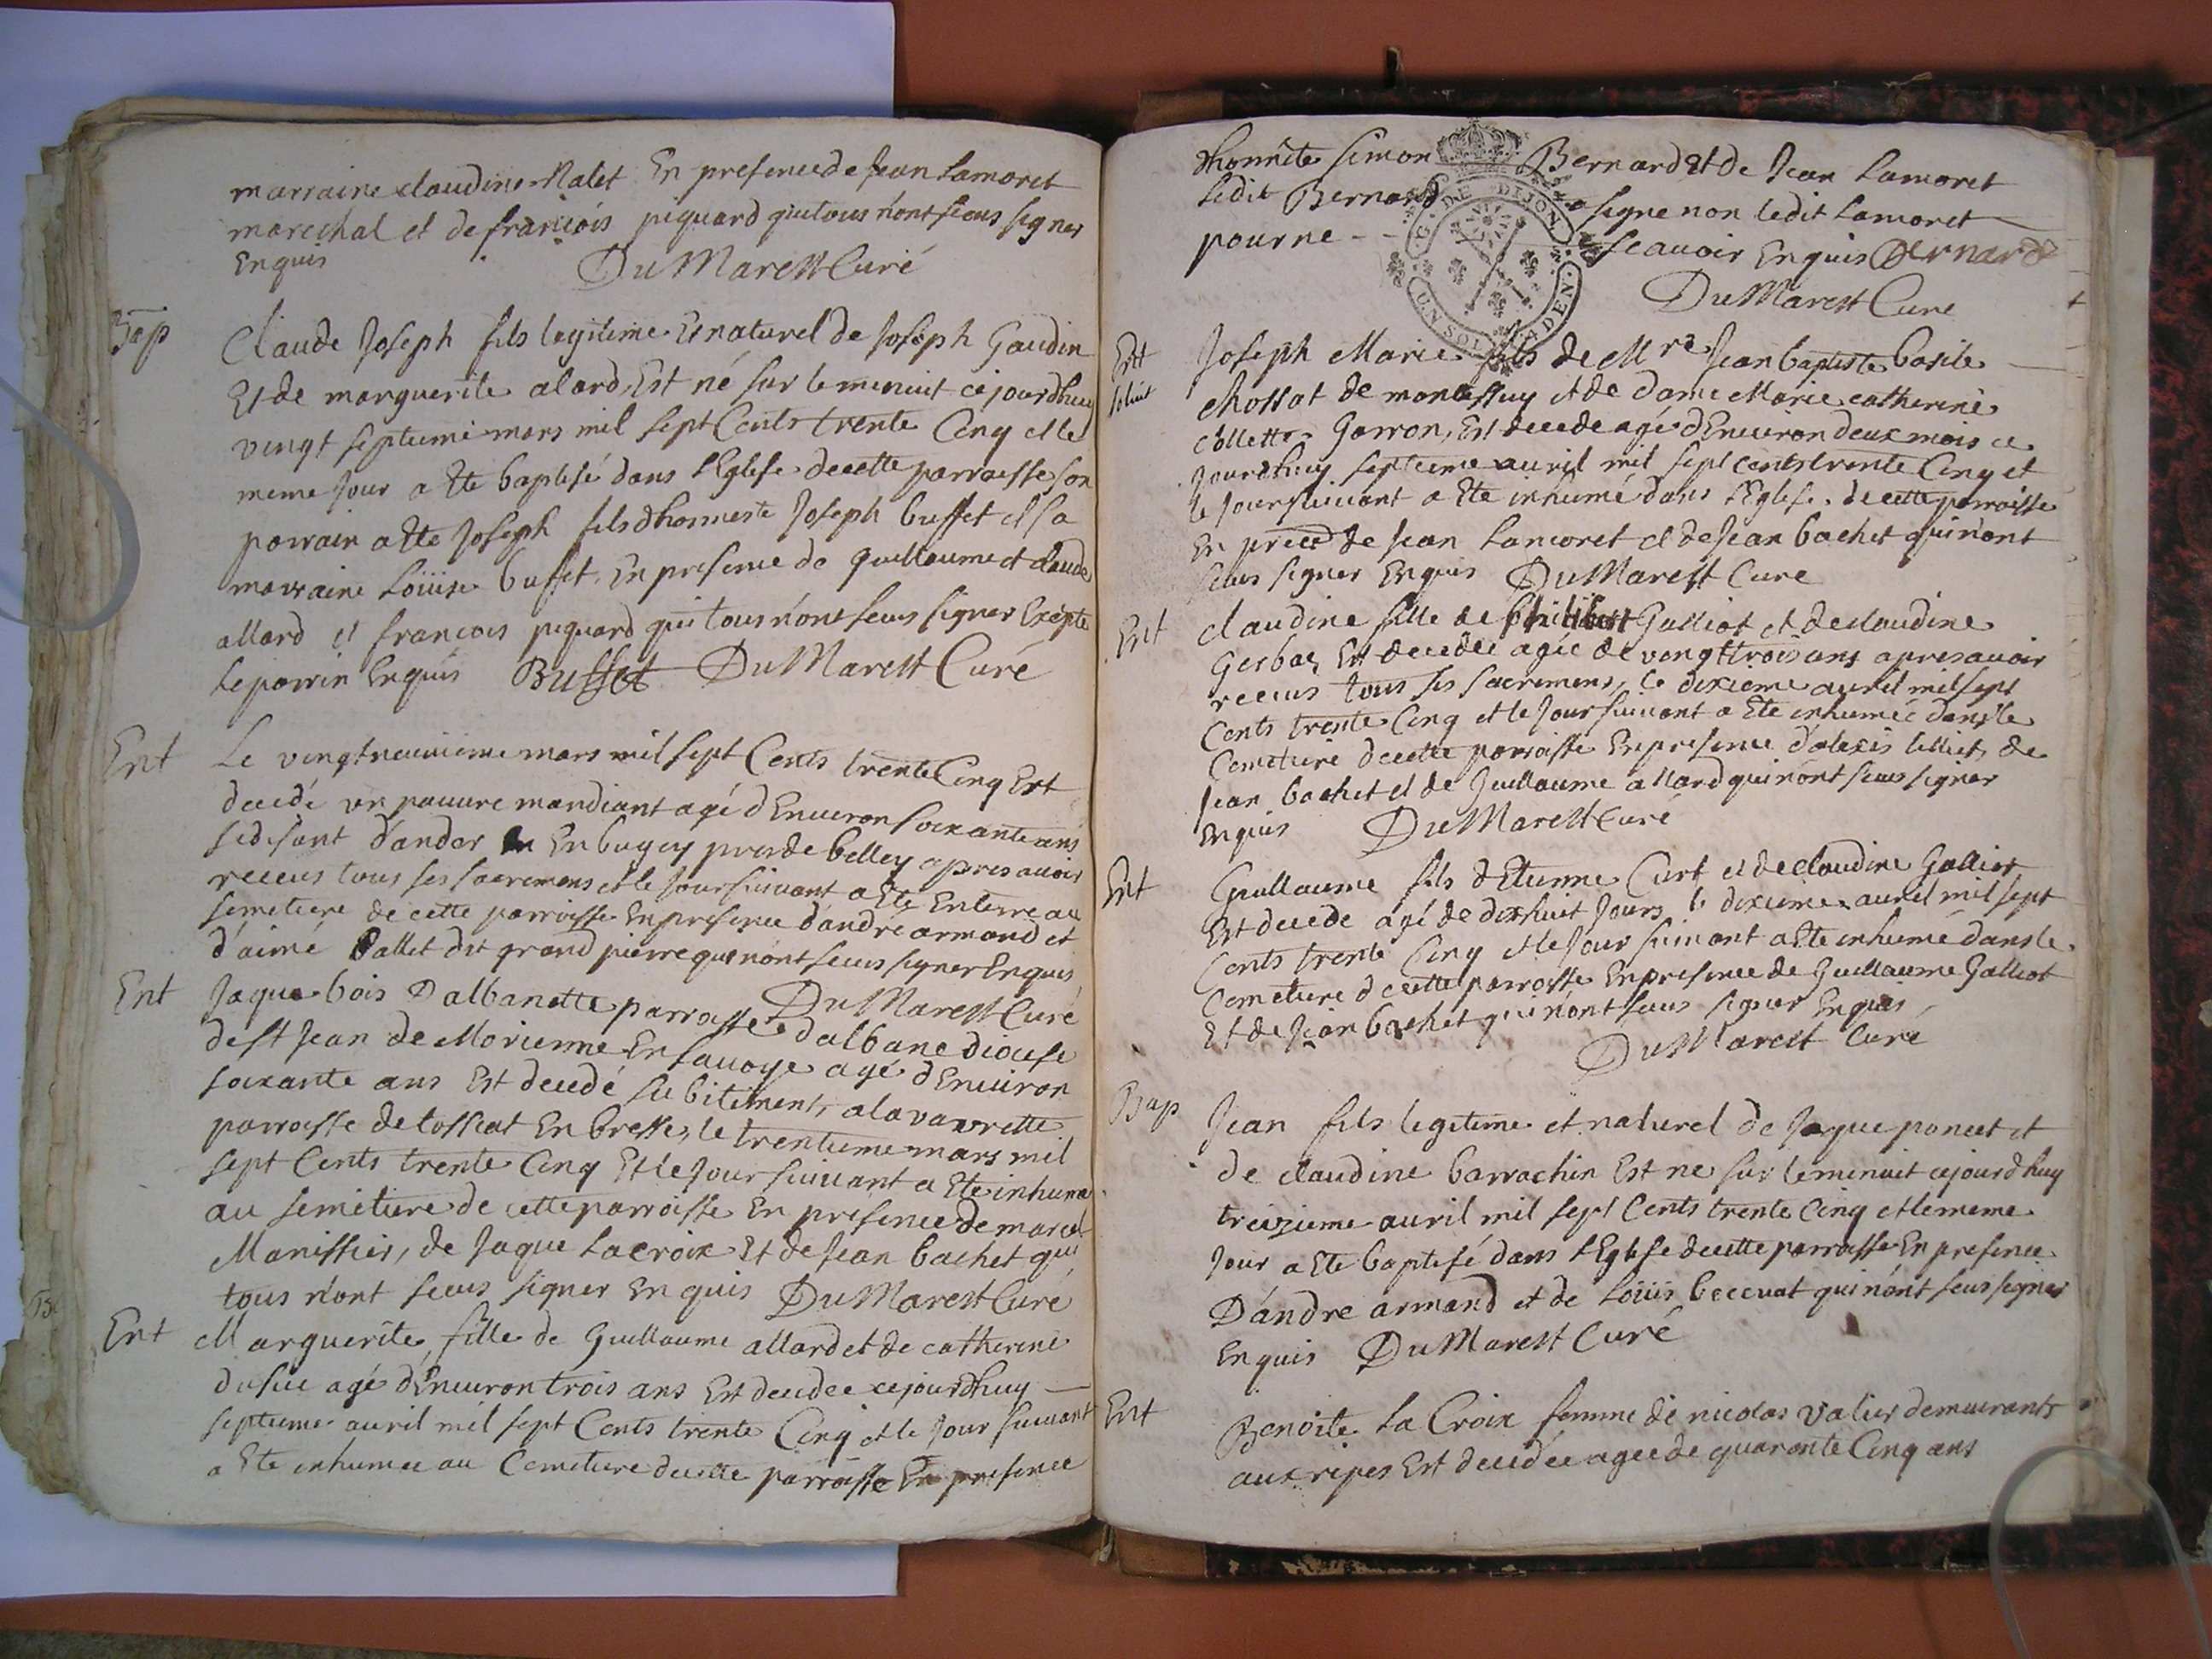 marraine claudine Malet En presence de Jean Lamoret
marechal et de francois piquard qui tous n'ont sceus signer
Enquis DuMarest Curé
Bap
Claude Joseph fils legitime Et naturel de Joseph Gaudin
Et de marguerite alard, Est né sur le minuit ce jourdhuy
vingt septieme mars mil sept Cents trente Cinq et le
meme Jour a Ete baptisé dans l'Eglise de cette parroisse son
parrain a Ete Joseph fils dhonneste Joseph buffet et sa
marraine Loüise buffet. En presence de guillaume et claude
allard et francois piquard qui tous n'ont sceus signer Excepte
le parrin Enquis Buffet DuMarest Curé
Ent
Le vingtneuvieme mars mil sept Cents trente Cinq Est
decedé un pauvre mandiant agé dEnviron soixante ans
se disant d'andar En bugey pres de belley apres avoir
receus tous ses sacremens et le Jour suivant a Ete Enterre au
semetiere de cette parroisse En presence d'andré armand et
d'aimé Pallet dit grand pierre qui n'ont sceus signer Enquis
DuMarest Curé
Ent
Jaque bois D'albanette parroisse d'albane diocese
de st Jean de Morienne En Savoye agé dEnviron
soixante ans Est decedé subitement, a la vavrette
parroisse de tossiat En bresse, le trentieme mars mil
sept Cents trente Cinq Et le Jour suivant a Ete inhumé
au semetiere de cette parroisse En presence de marcel
Manissier, de Jaque Lacroix Et de Jean bachet qui
tous n'ont sceus signer Enquis DuMarest Curé
Ent
Marguerite, fille de Guillaume allard et de catherine
agé dEnviron trois ans Est decedee cejourdhuy
septieme avril mil sept Cents trente Cinq et le Jour suivant
a Ete inhumee au Cemetiere de cette parroisse En presence
dhonnete Simon Bernard et de Jean Lamoret
Ledit Bernard a signe non ledit Lamoret
pour ne sçauoir Enquis Bernard
DuMarest Cure
G. DE DIJON
UN SOL DEN.
Ent
Joseph Marie fils de Mre Jean baptiste basile
Chossat de montessuy et de dame Marie catherine
Collette Garron, Est decede agé dEnviron deux mois ce
Jourdhuy septieme avril mil sept cents trente Cinq et
le Jour suivant a Ete inhumé dans l'Eglise de cette parroisse
En de Jean Lamoret et de Jean bachet qui n'ont
sceus signer Enquis DuMarest Cure
Ent
Claudine fille de philibert Galliot et de claudine
Gerbae, Est decedée agée de vingt trois ans apres avoir
receus tous ses sacremens, le dixieme avril mil sept
Cents trente Cinq et le Jour suivant a Ete inhumée dans le
Cemetiere de cette parroisse En presence d'alexis de
Jean bachet et de Guillaume allard qui n'ont sceus signer
Enquis DuMarest Curé
Ent
Guillaume fils dEtienne Curt et de claudine Galliot
Est decede agé de dixhuit Jours, le dixieme avril mil sept
Cents trente Cinq et le Jour suivant a Ete inhumé dans le
Cemetiere de cette parroisse En presence de Guillaume Galliot
Et de Jean bachet qui n'ont sceus signer Enquis
DuMarest Curé
Bap
Jean fils legitime et naturel de Jaque poncet et
de claudine barrachin Est ne sur le minuit cejourdhuy
treizieme avril mil sept Cents trente Cinq et le meme
Jour a Ete baptisé dans l'Eglise de cette parroisse En presence
D'andre armand et de Loüis becevat qui n'ont sceus signer
Enquis DuMarest Curé
Ent
Benoite La Croix femme de nicolas valier demeurants
aux ripes Est decedée agee de quarante Cinq ans